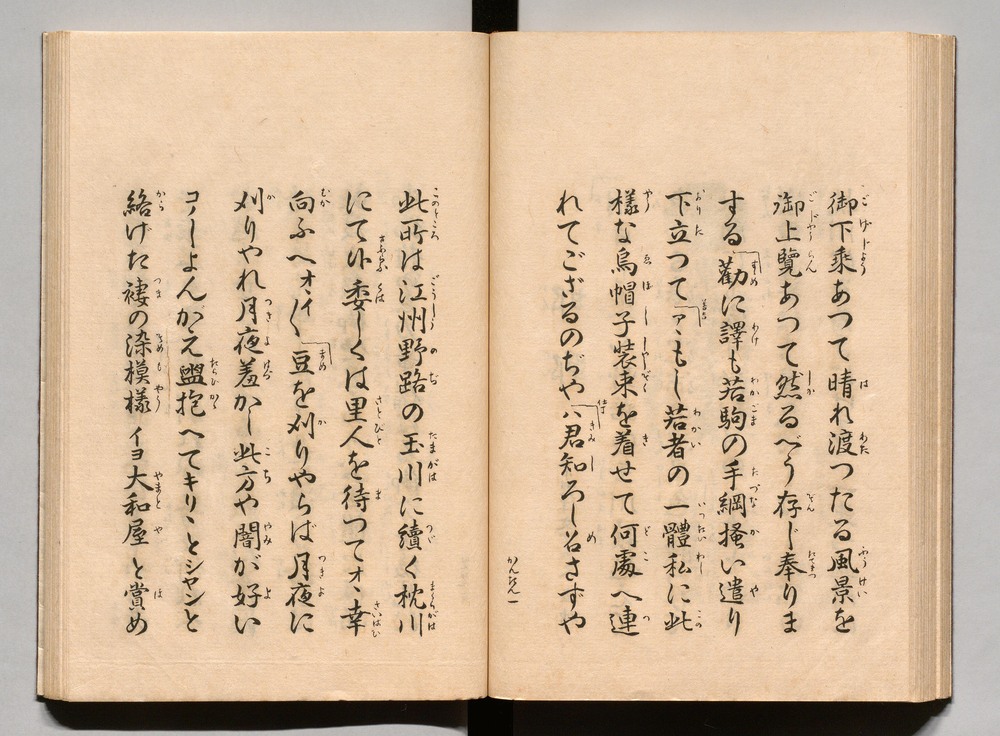 御下乘あつて晴れ渡つたる風景を
御上覽あつて然るべう存じ奉りま
する 勸に譯も若駒の手綱掻い遣り
下立つて アヽもし若者の一體私に此
樣な烏帽子装束を着せて何處へ連
れてござるのぢや ハ君知ろし召さずや
かんたん一
此所は江州野路の玉川に續く枕川
にて 委しくは里人を待つてオヽ幸
向ふへ オヽイ〱 豆を刈りやらば月夜に
刈りやれ月夜羞かし此方や闇が好い
コヽしよんがえ 抱へてキリヽとシヤンと
絡げた褄の染模樣 イヨ大和屋 と賞め